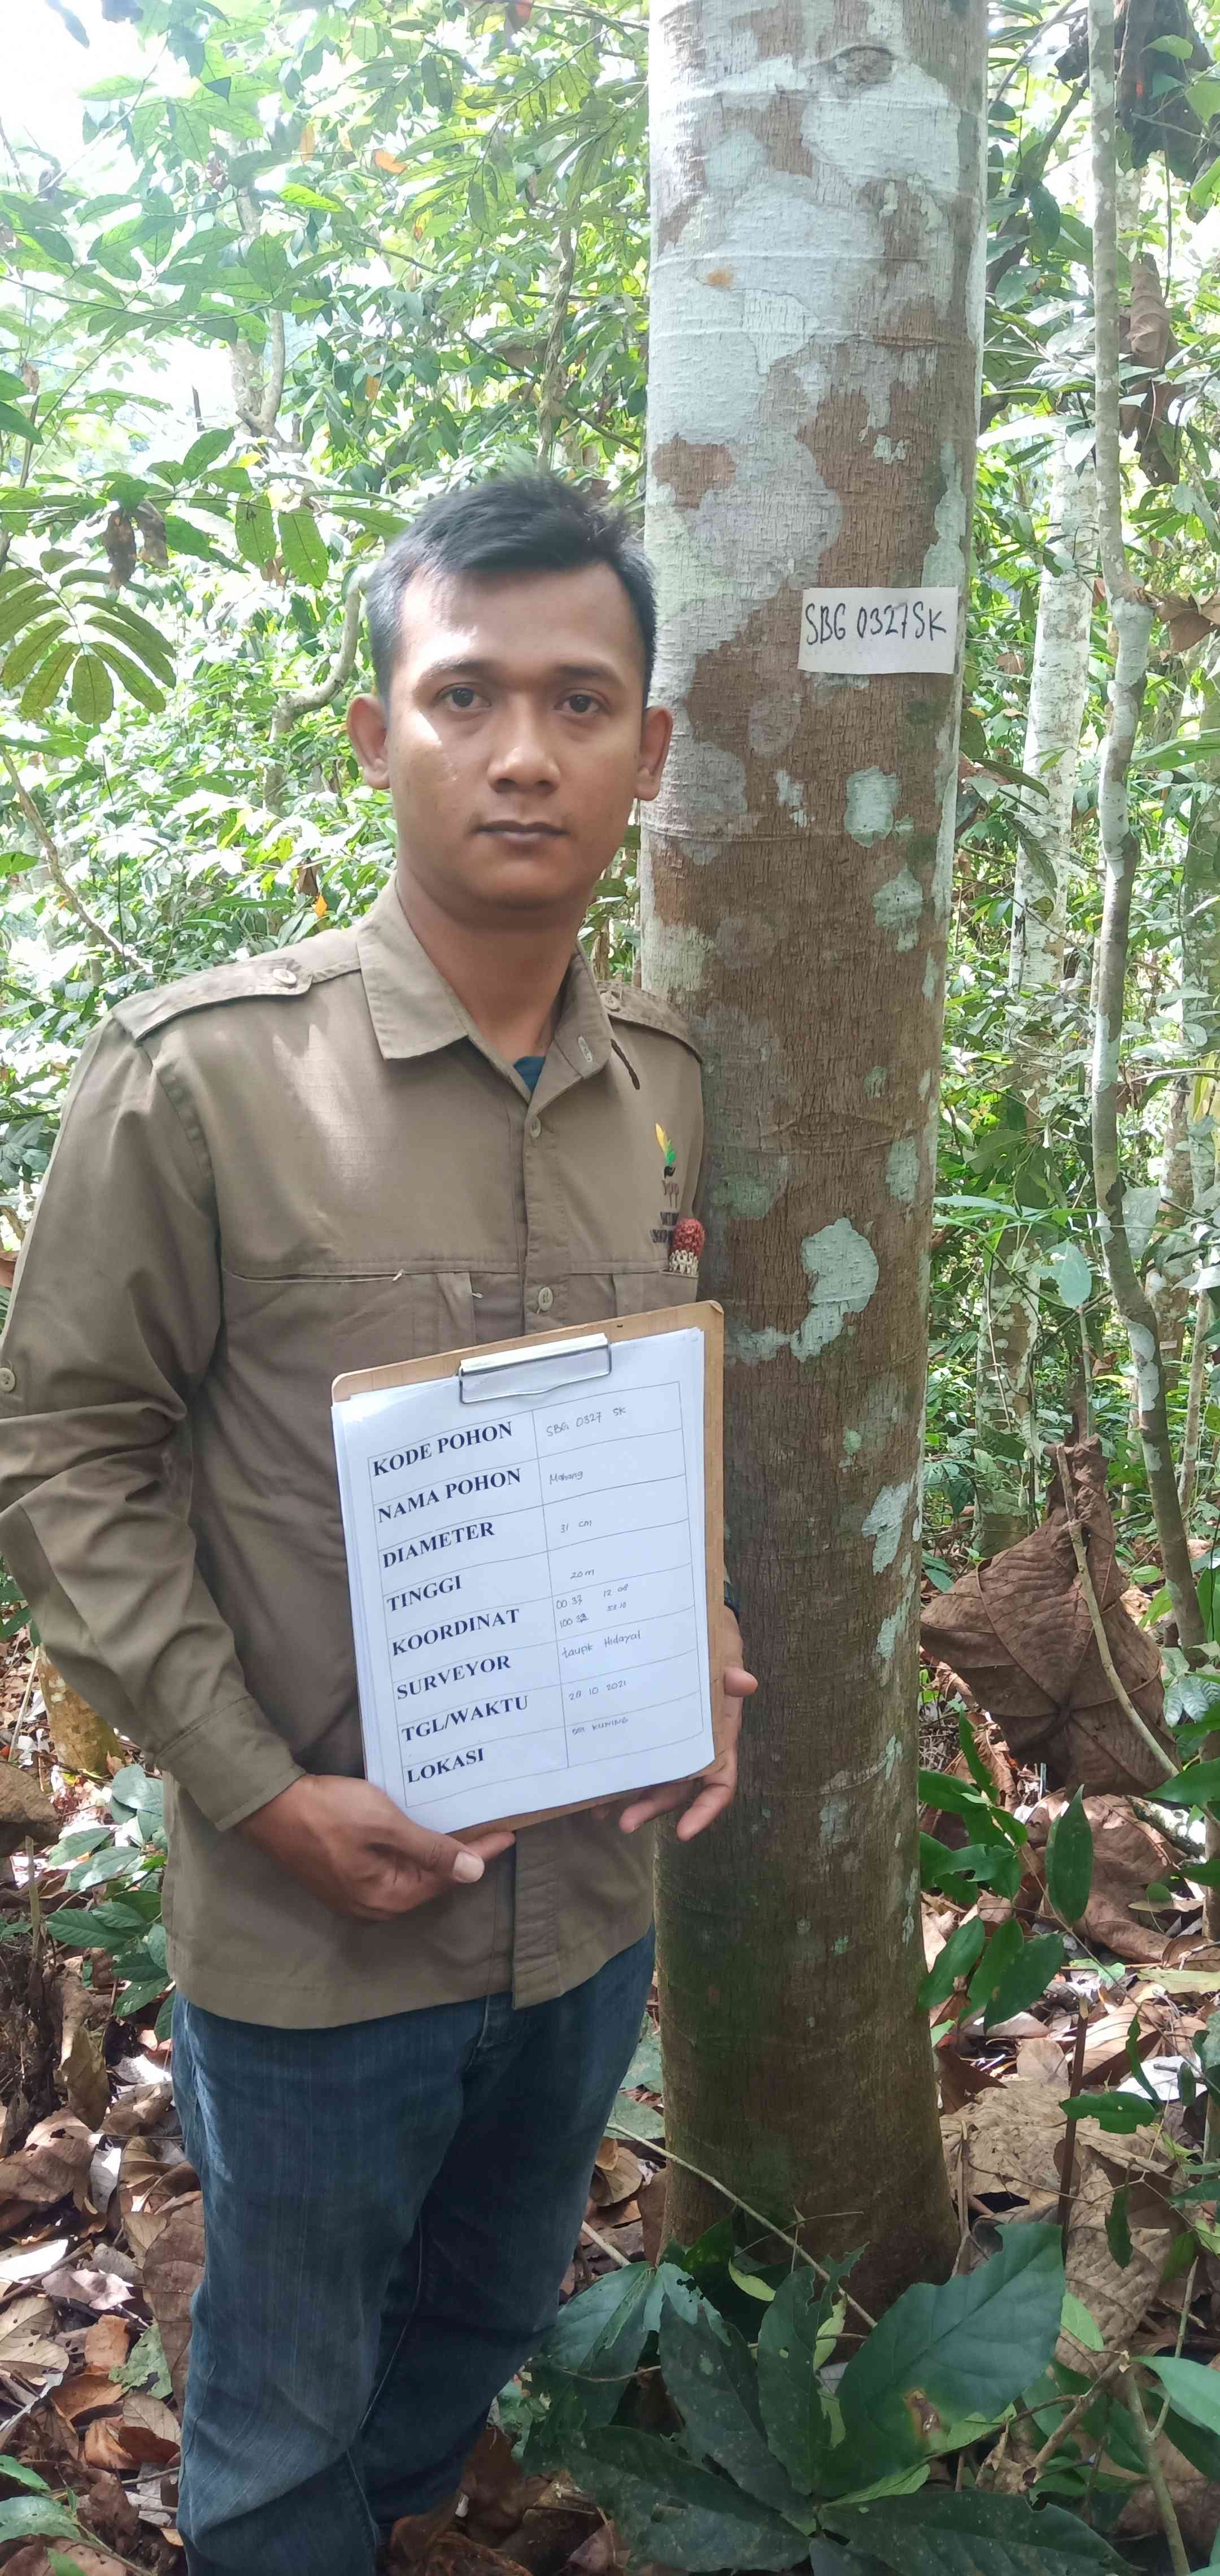 SBG 0327 SK
KODE POHON SBG 0327 SK
NAMA POHON Mahang
DIAMETER 31 cm
TINGGI 20 m
KOORDINAT 00 37 12.08
100 32
SURVEYOR taupik Hidayat
TGL/WAKTU 28 10 2021
LOKASI KUNING